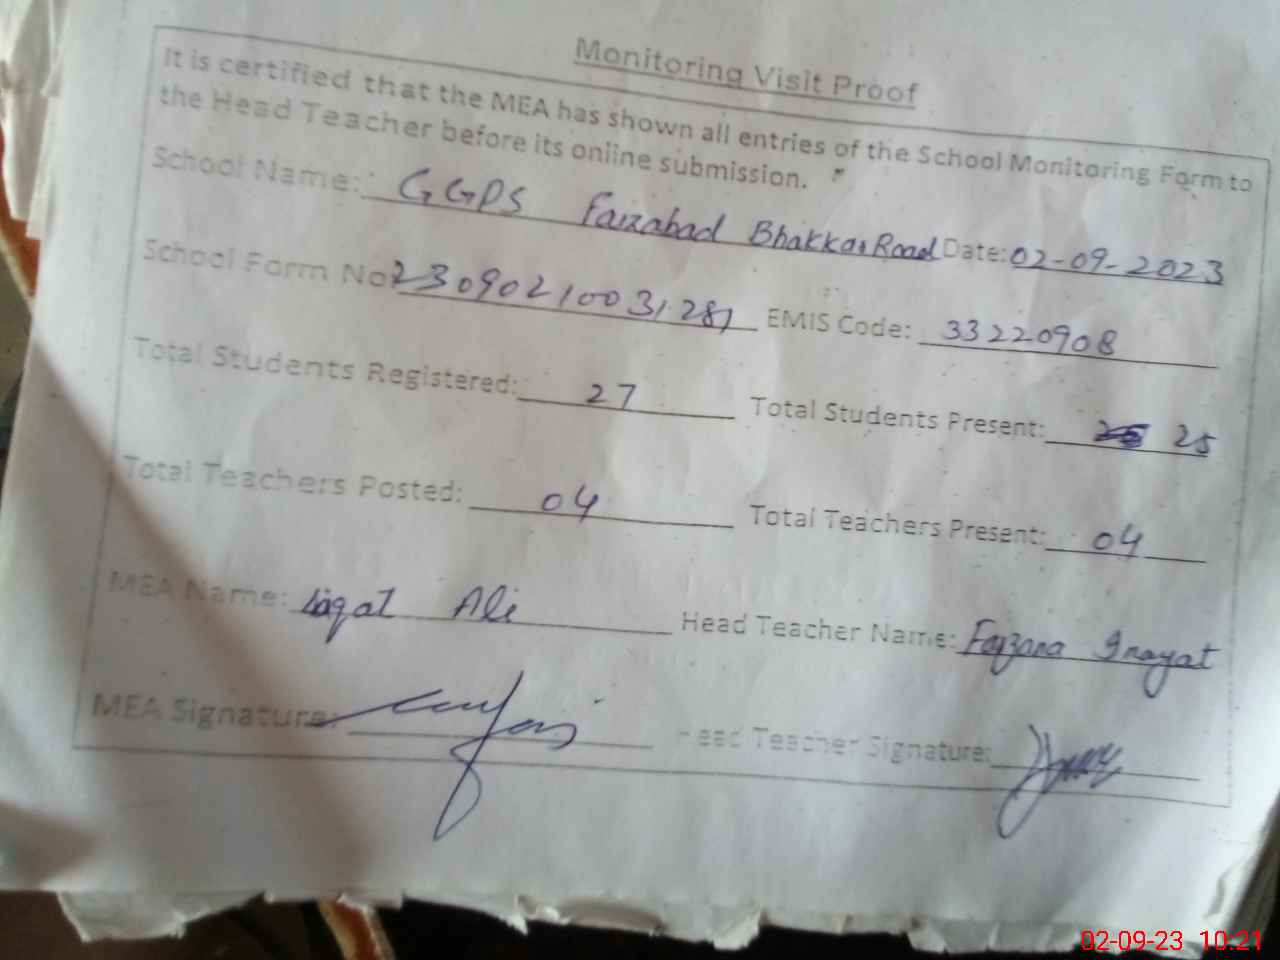 Monitoring Visit Proof
It is certified that the MEA has shown all entries of the School Monitoring Form to
the Head Teacher before its online submission.
School Name: GGPS Faizabad Bhakkar Road Date: 02-09-2023
School Form No: 2309021003128 EMIS Code: 33220908
Total Students Registered: 27 Total Students Present: 25
Total Teachers Posted: 04 Total Teachers Present: 04
MEA Name: Liaqat Ali Head Teacher Name: Farzana Inayat
MEA Signature: Head Teacher Signature:
02-09-23 10:21